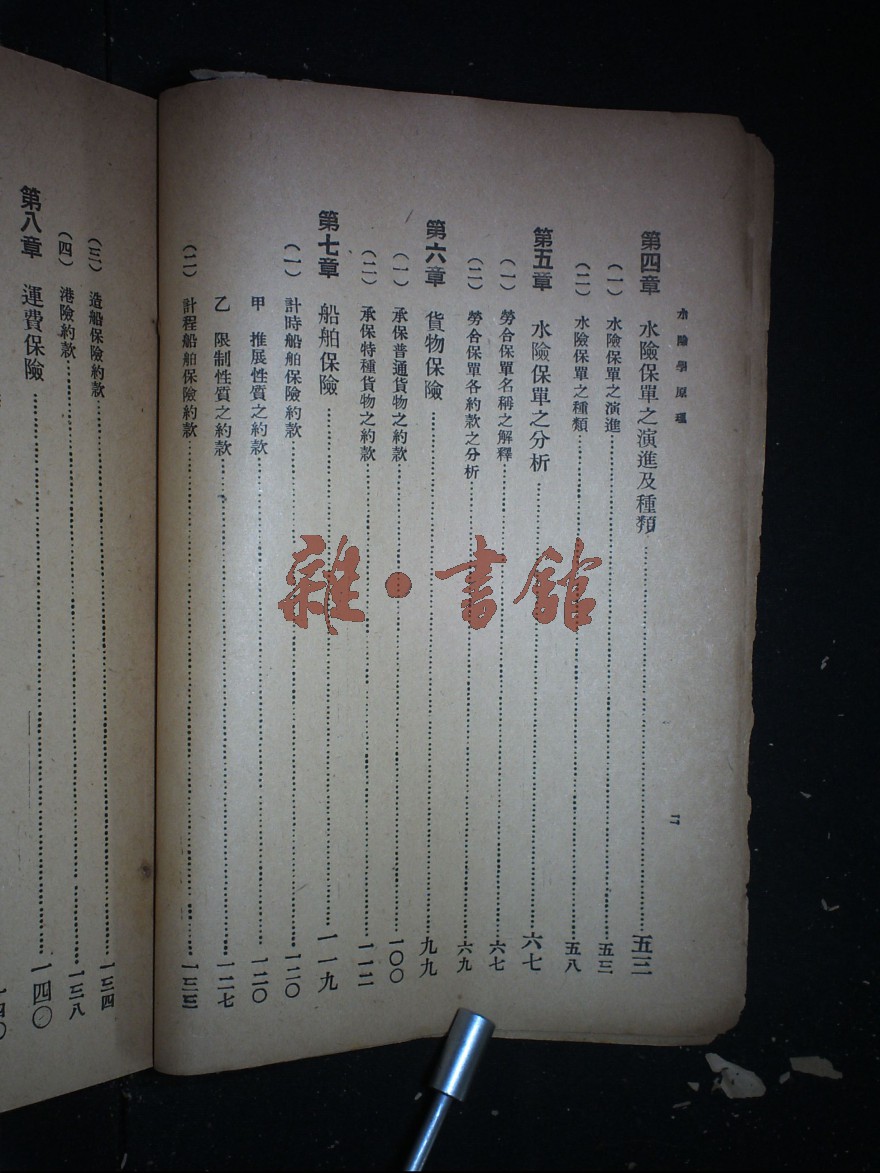 水險學原理
二
第四章　水險保單之演進及種類……五三
（一）　水險保單之演進……五三
（二）　水險保單之種類……五八
第五章　水險保單之分析……六七
（一）　勞合保單名稱之解釋……六七
（二）　勞合保單各約款之分析……六九
第六章　貨物保險……九九
（一）　承保普通貨物之約款……一〇〇
（二）　承保特種貨物之約款……一一二
第七章　船舶保險……一一九
（一）　計時船舶保險約款……一二〇
甲　推展性質之約款……一二〇
乙　限制性質之約款……一二七
（二）　計程船舶保險約款……一三三
（三）　造船保險約款……一三四
（四）　港險約款……一三八
第八章　運費保險……一四〇
一四〇
雜·書館